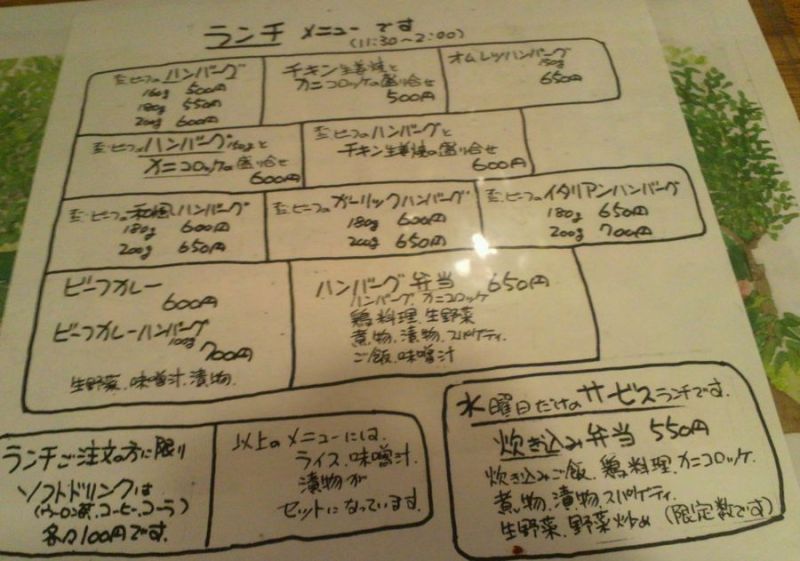 ランチ メニューです
(11:30~2:00)
ビーフのハンバーグ
160g 500円
180g 550円
200g 600円
チキン生姜焼と
カニコロッケの盛り合せ
500円
オムレツハンバーグ
150g
650円
ビーフのハンバーグ160gと
カニコロッケの盛り合せ
600円
ビーフのハンバーグと
チキン生姜焼の盛り合せ
600円
ビーフの和風ハンバーグ
180g 600円
200g 650円
ビーフのガーリックハンバーグ
180g 600円
200g 650円
ビーフのイタリアンハンバーグ
180g 650円
200g 700円
ビーフカレー
600円
ビーフカレーハンバーグ
100g
700円
生野菜、味噌汁、漬物、
ハンバーグ弁当 650円
ハンバーグ、カニコロッケ
鶏料理、生野菜
煮物、漬物、スパゲティ
ご飯、味噌汁
ランチご注文の方に限り
ソフトドリンクは
(ウーロン茶、コーヒー、コーラ)
各々100円です。
以上のメニューには、
ライス、味噌汁、
漬物が
セットになっています。
水曜日だけのサービスランチです。
炊き込み弁当 550円
炊き込みご飯、鶏料理、カニコロッケ、
煮物、漬物、スパゲティ、
生野菜、野菜炒め (限定数です)